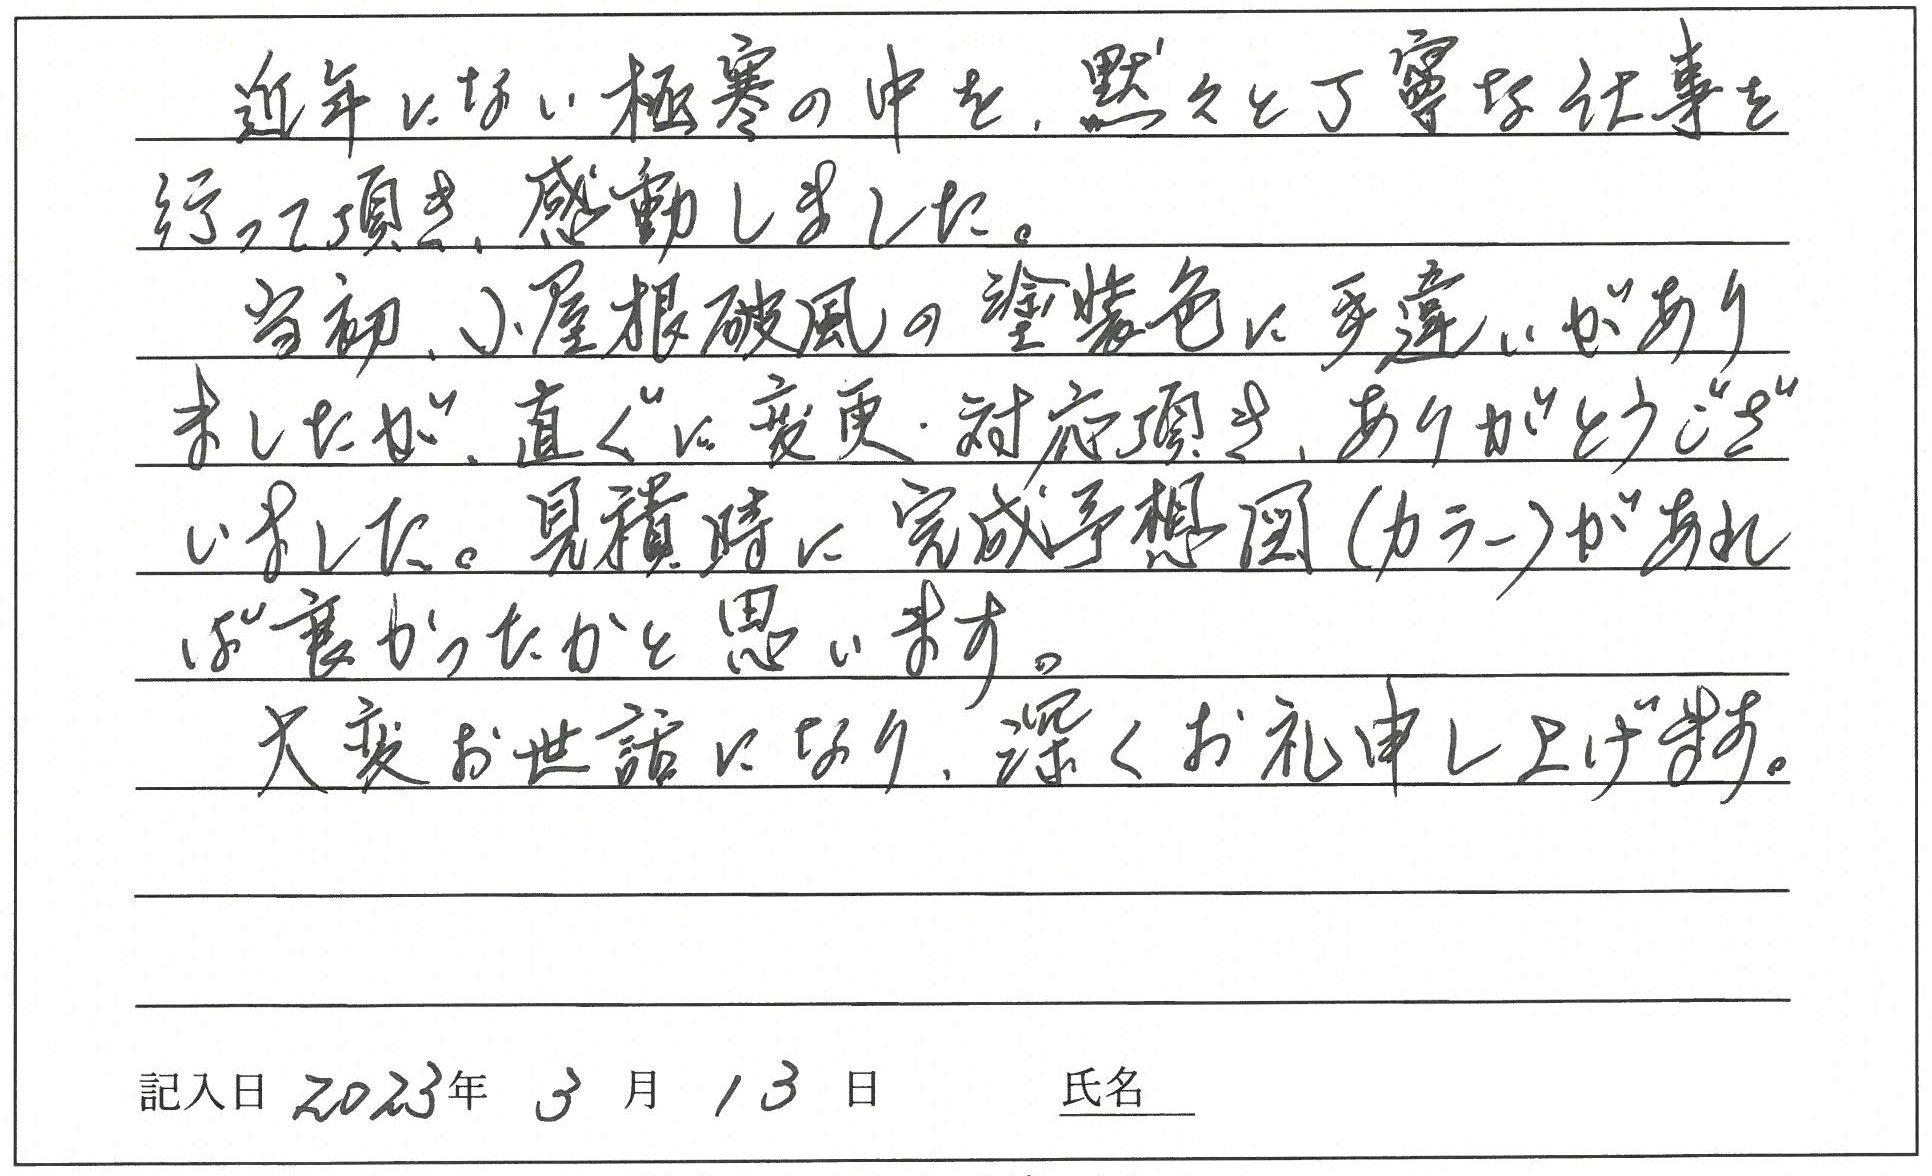 近年にない極寒の中を、黙々と丁寧な仕事を
行って頂き、感動しました。
当初、小屋根破風の塗装色に手違いがあり
ましたが、直ぐに変更・対応頂き、ありがとうござ
いました。見積時に完成予想図(カラー)があれ
ば良かったかと思います。
大変お世話になり、深くお礼申し上げます。
記入日 2023年 3 月 13 日 氏名